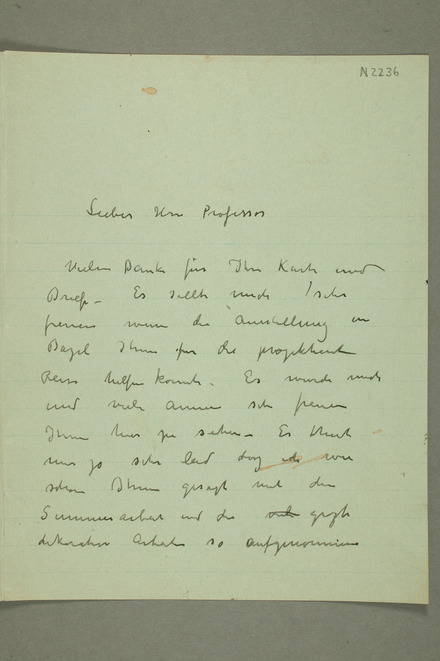 N 2236
Lieber Herr Professor
Vielen Dank für Ihre Karte und
Brief – Es sollte mich sehr
freuen wenn die Ausstellung in
Basel Ihnen für die projektierte
Reise helfen könnte. Es würde mich
und viele andere sehr freuen
Ihnen hier zu sehen – Es thut
mir ja sehr leid dass ich wie
schon Ihnen gesagt mit den
Sommerarbeit und die große
dekorative Arbeiten so aufgenommen